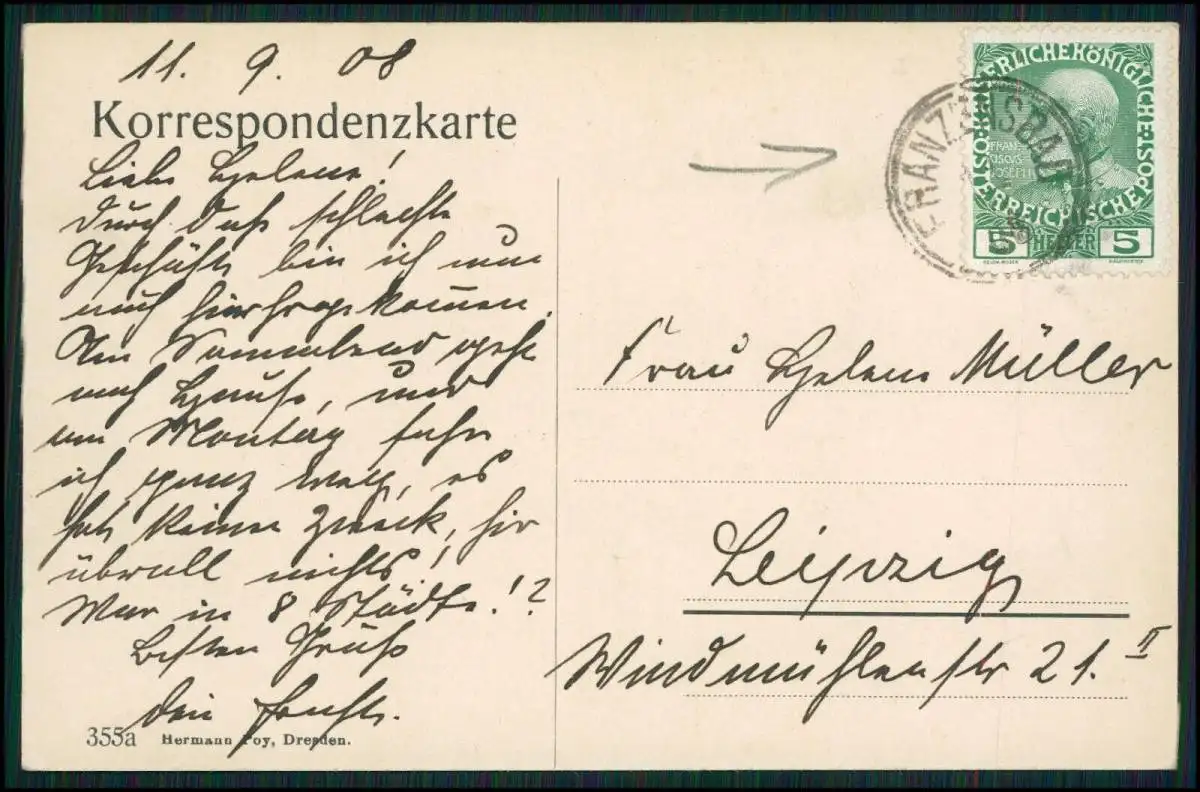 11. 9. 08
Korrespondenzkarte
Liebe Helene!
Durch das schlechte
Geschäft bin ich nun
auch hierher gekommen.
Am Sonnabend geht
nach Hause, und
am Montag fahre
ich ganz weg, es
hat keinen Zweck, hier
überall nichts!
War in 8 Städte!?
Besten Gruß
Dein
355a Hermann Poy, Dresden.
FRANZENSBAD
KAISERLICHE KÖNIGLICHE
ÖSTERREICHISCHE POST
FRANCISCVS JOSEPH I
5 HELLER 5
Frau Helene Müller
Leipzig
Windmühlenstr 21. II